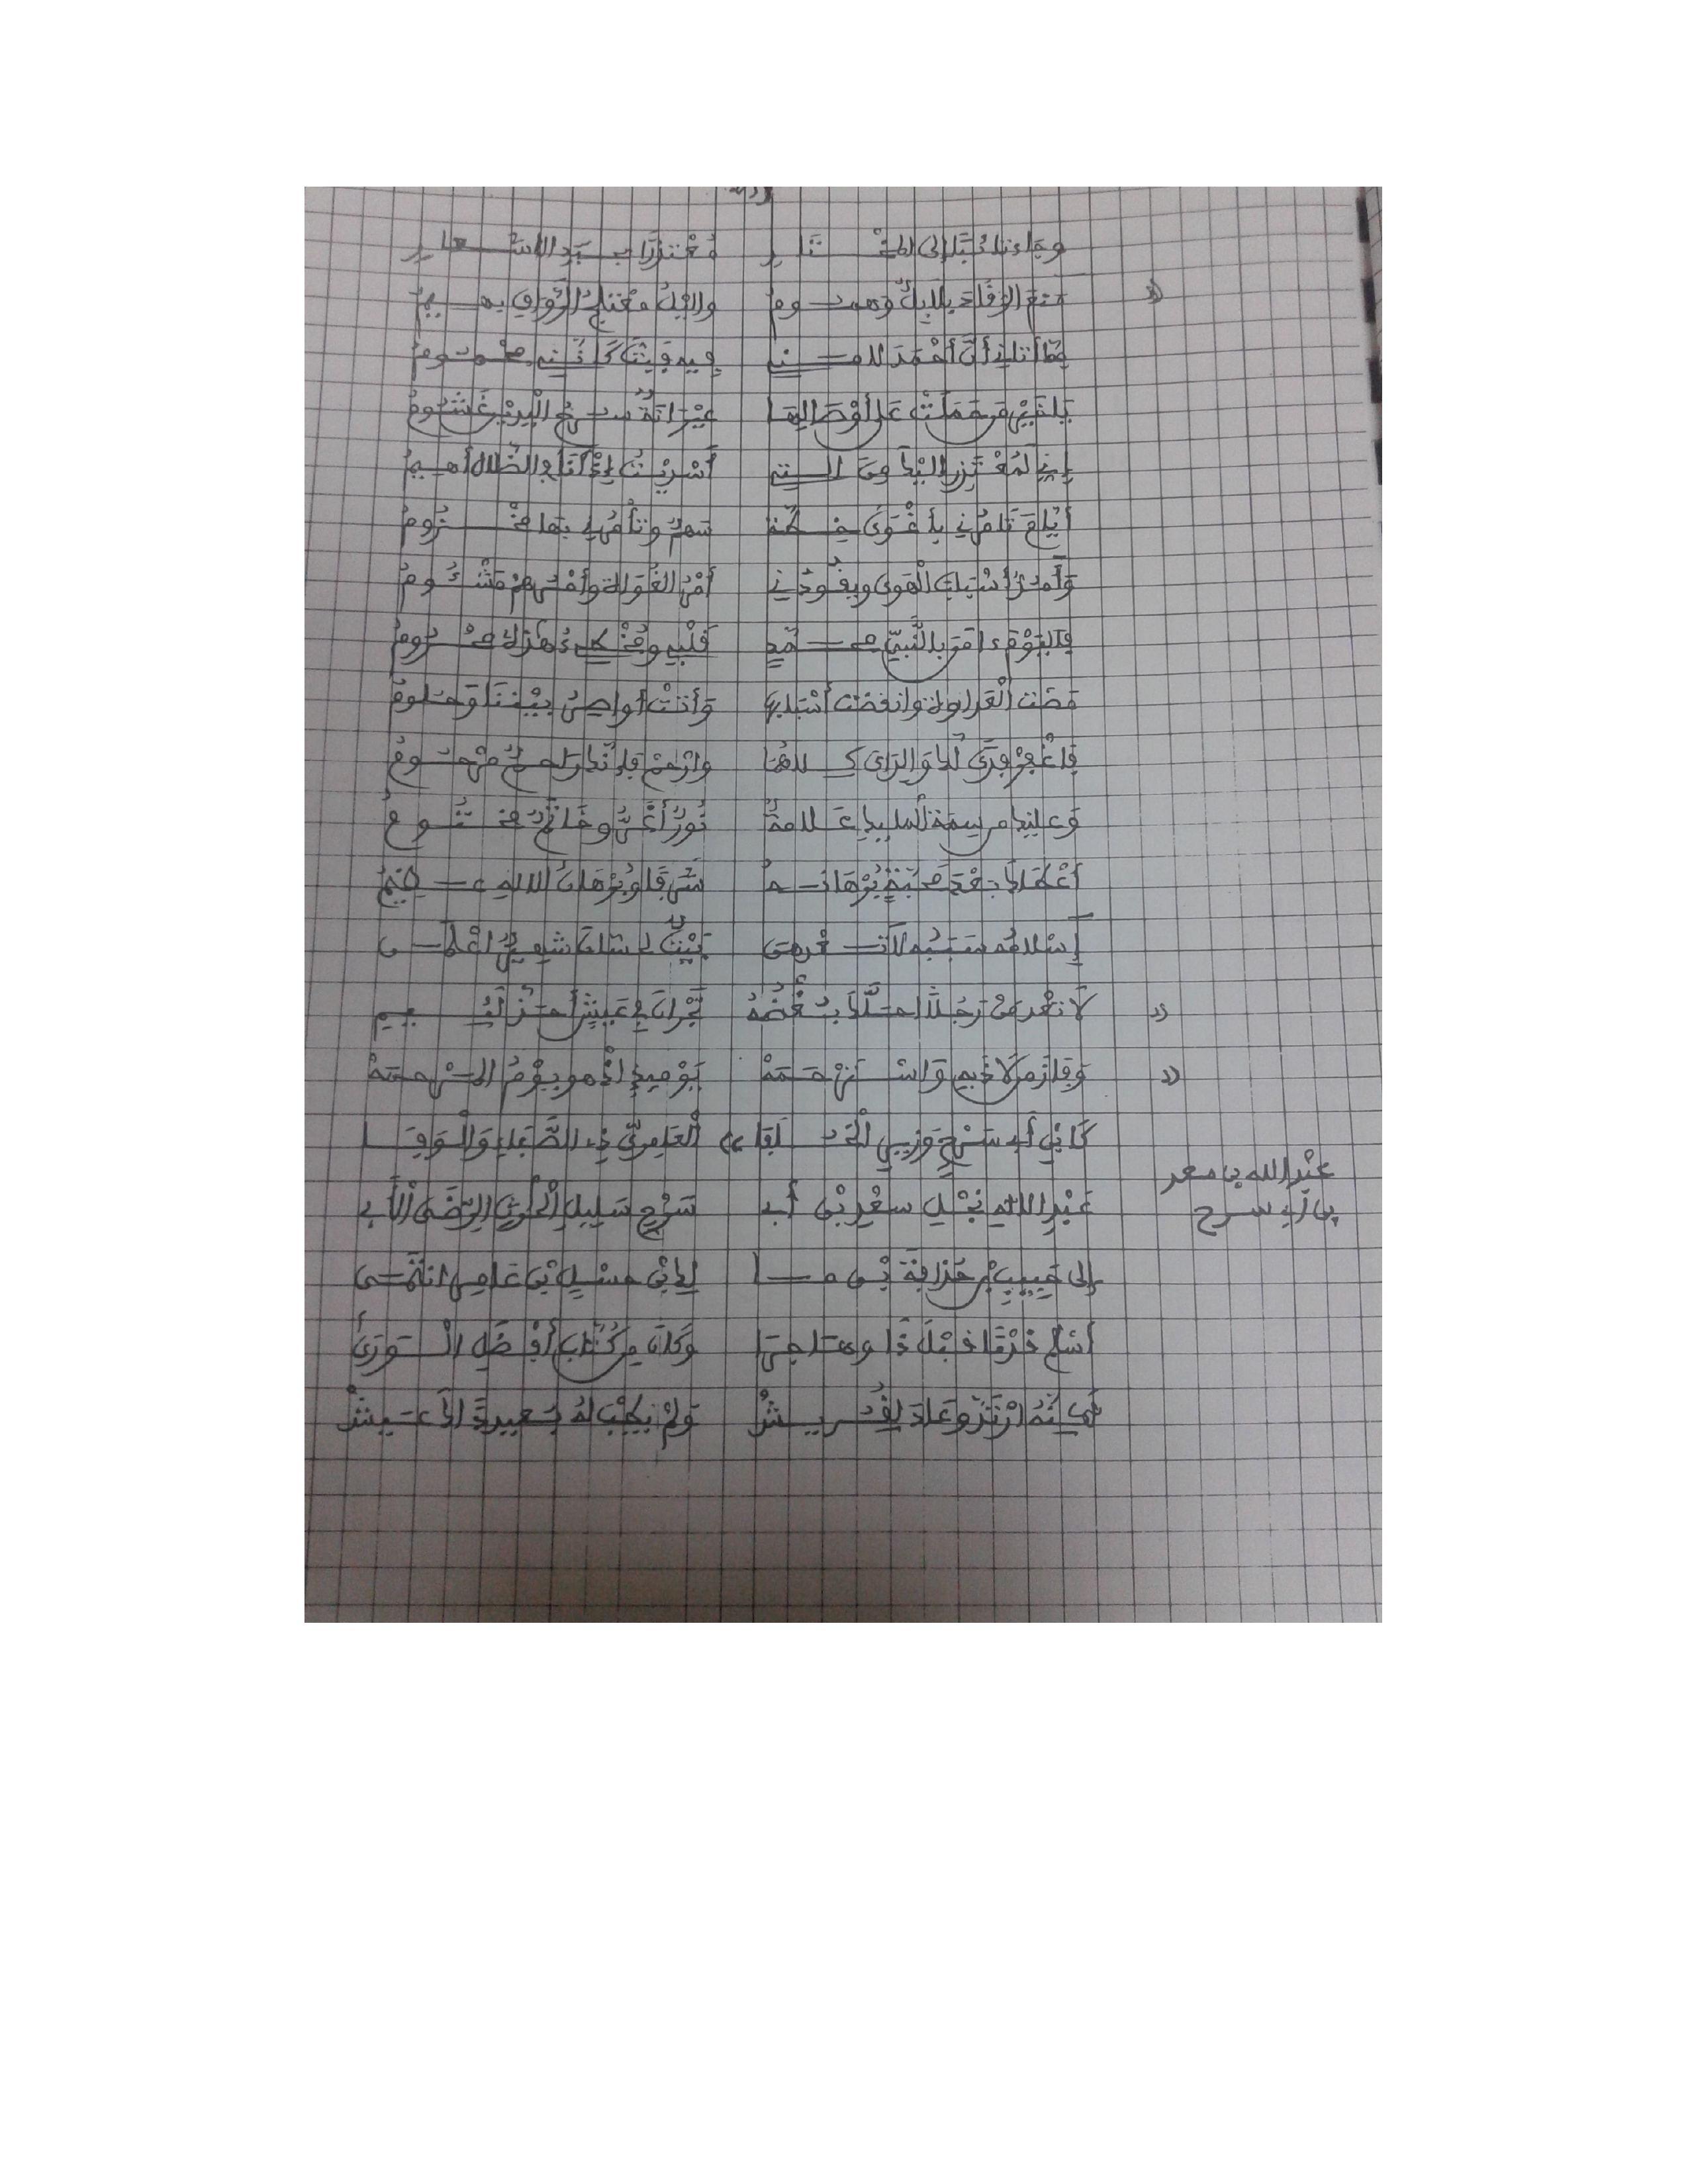 وجاءنا تائبا إلى المختار معتذرا بجيد الأشعار
منع الرقاد بلابل وهموم والليل معتلج الرواق بهيم
مما أتاني أن أحمد لامني فيه فبت كأنني محموم
يا خير من حملت على أوصالها عيرانة سرح اليدين غشوم
إني لمعتذر إليك من التي أسريت إذ أنا في الضلال أهيم
أيام تأمرني بأغوى خطة سهم وتأمرني بها مخزوم
وأمد أسباب الهوى ويقودني أمر الغواة وأمرهم مشئوم
فاليوم ءامن بالنبي محمد قلبي ومخطئ هذه محروم
مضت العداوة وانقضت أسبابها وأتت أواصر بيننا وحلوم
فاغفر فدى لك والدي كلاهما وارحم فإنك راحم مرحوم
وعليك من سمة المليك علامة نور أغر وخاتم مختوم
أعطاك بعد محبة برهانه شرفا وبرهان الإله عظيم
إسلامه سببه لا تعدمن بيت لحسان شهير
لا تعدمن رجلا احلك بغضه نجران في عيش أحذ لئيم
وفاز من لاذ به واسترحمه يومئذ إذ هو يوم المرحمة
كابن أبي سرح وزير الخلفاء العامري ذي الصفاء والوفا
عبد الله بن سعد
بن أبي سرح
عبد الإله نجل سعد بن أبي سرح سليل الحرث الرضى الأبي
إلى حبيب بن حذافة بن ما لك بن حسل بن عامر انتمى
أسلم قدما قبل ذا وهاجرا وكان من كتاب أفضل الورى
ثمت ارتد وعاد لقريش ولم يطب له بعيد ذاك عيش